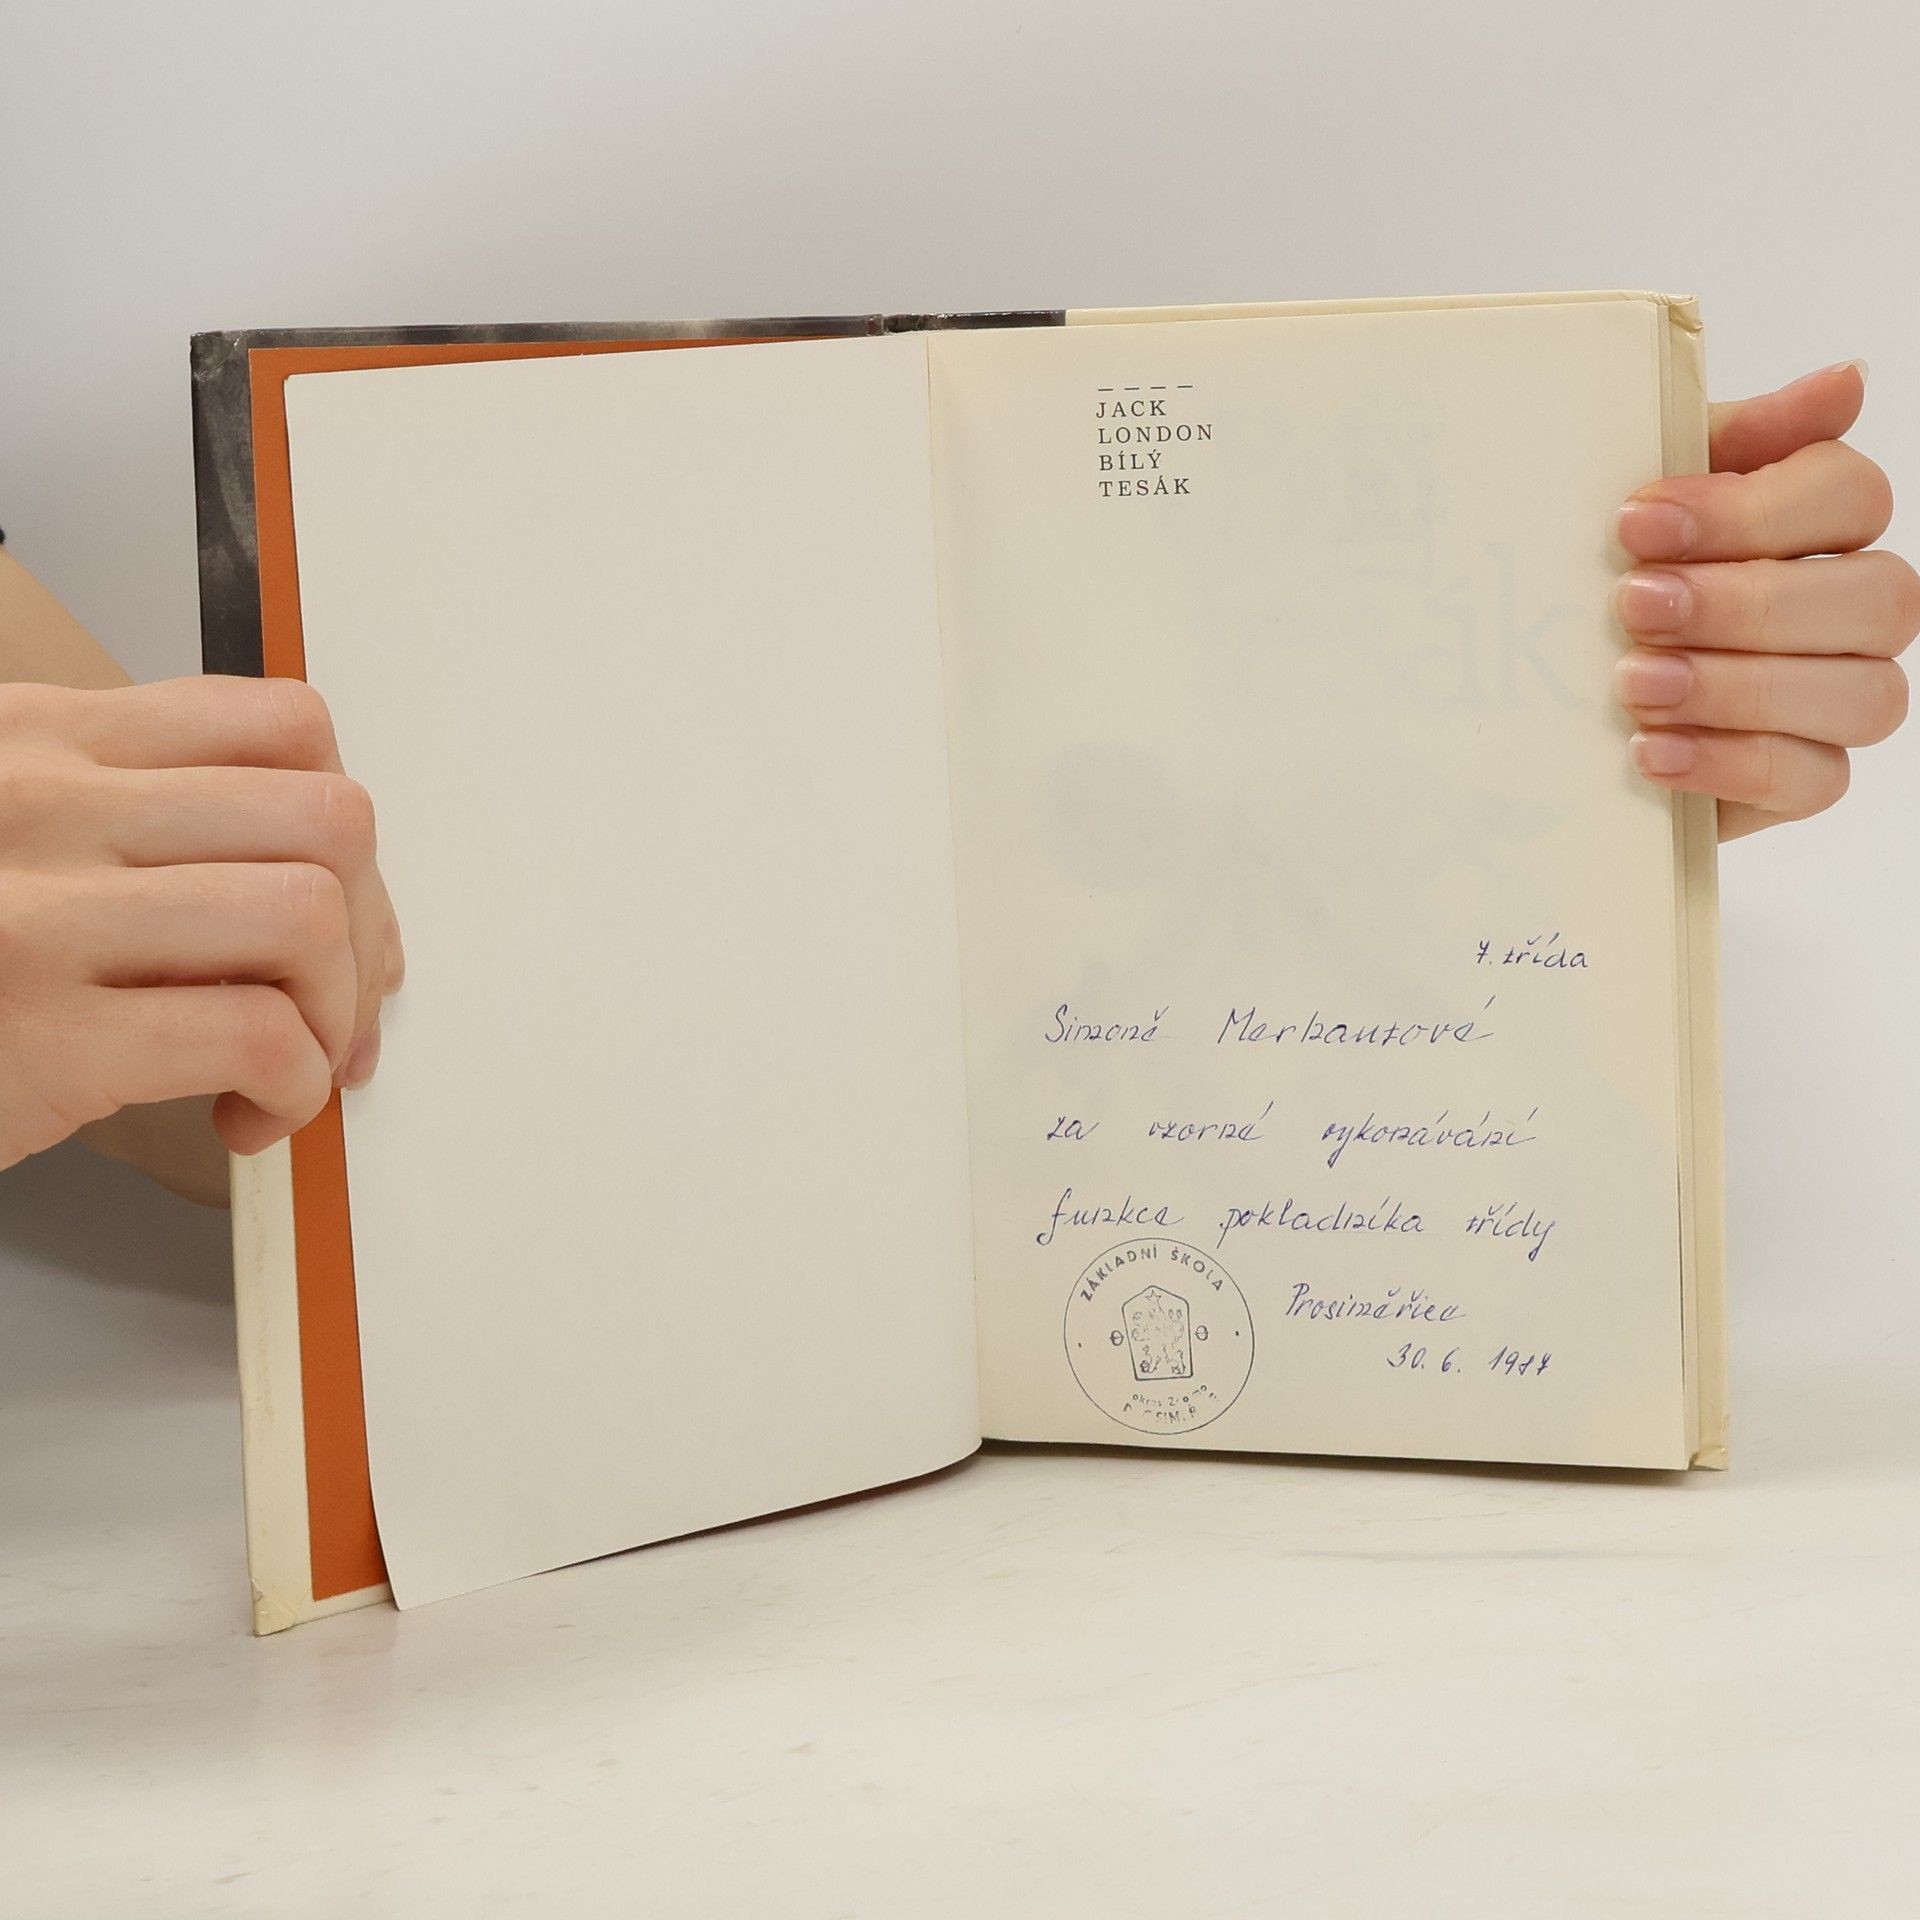 JACK
LONDON
BÍLÝ
TESÁK
7. třída
Simoně Merkautové
za vzorné vykonávání
funkce pokladníka třídy
ZÁKLADNÍ ŠKOLA
okres Znojmo
Prosiměřice
30. 6. 1987